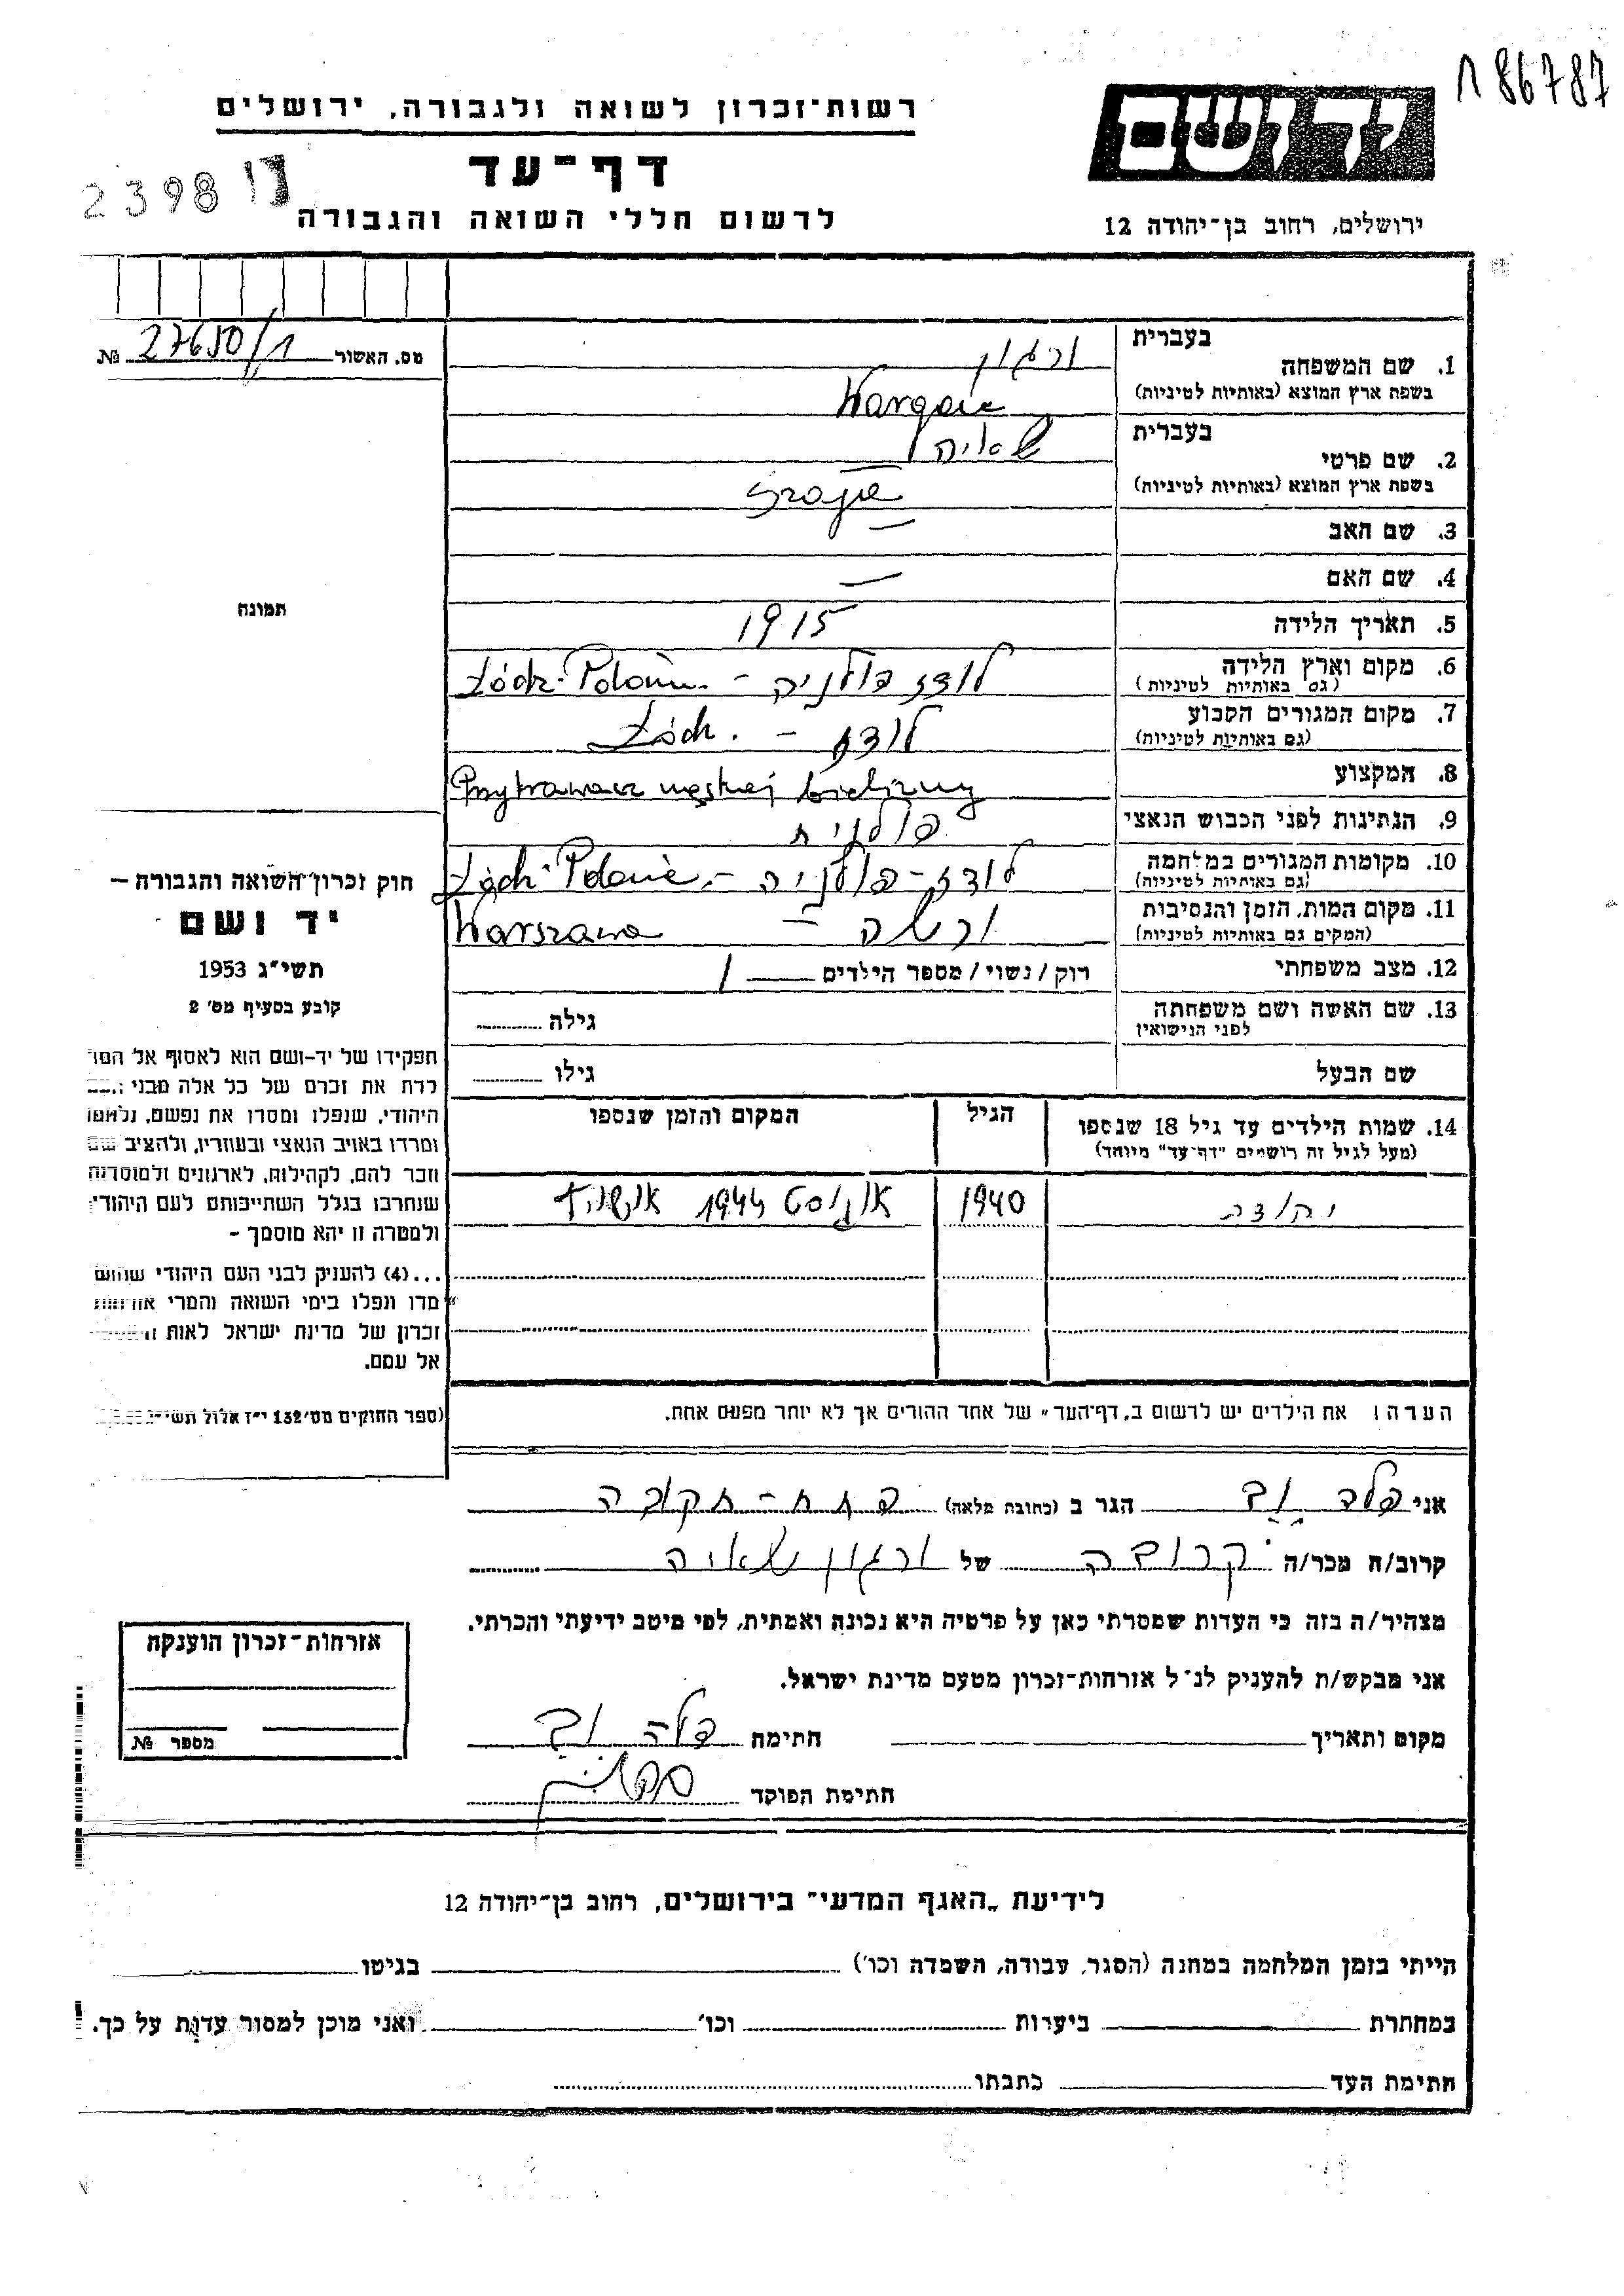 186787
רשות־זכרון לשואה ולגבורה, ירושלים
יד ושם
דף־עד
2398
לרשום חללי השואה והגבורה
ירושלים, רחוב בן־יהודה 12
מס. האשור 27650/1 №
בעברית
1. שם המשפחה ורגון
בשפת ארץ המוצא (באותיות לטיניות)
בעברית
2. שם פרטי שאיה
בשפת ארץ המוצא (באותיות לטיניות) Szaja
3. שם האב —
4. שם האם —
תמונה
5. תאריך הלידה 1915
6. מקום וארץ הלידה לודז פולניה - Łódz-
(גם באותיות לטיניות)
7. מקום המגורים הקבוע לודז - Łódz.
(גם באותיות לטיניות)
8. המקצוע męskiej bielizny
9. הנתינות לפני הכבוש הנאצי פולנית
10. מקומות המגורים במלחמה לודז - פולניה - Łódz-
(גם באותיות לטיניות)
11. מקום המות, הזמן והנסיבות ורשה - Warszawa
(המקום גם באותיות לטיניות)
12. מצב משפחתי רוק / נשוי / מספר הילדים 1
13. שם האשה ושם משפחתה גילה
לפני הנישואין
שם הבעל גילו
14. שמות הילדים עד גיל 18 שנספו הגיל המקום והזמן שנספו
(מעל לגיל זה רושמים "דף־עד" מיוחד)
1940 אוגוסט 1944
הערה: את הילדים יש לרשום ב„דף־העד" של אחד ההורים אך לא יותר מפעם אחת.
חוק זכרון השואה והגבורה —
יד ושם
תשי"ג 1953
קובע בסעיף מס' 2
תפקידו של יד-ושם הוא לאסוף אל
לדת את זכרם של כל אלה מבני
היהודי, שנפלו ומסרו את נפשם, נלחמו
ומרדו באויב הנאצי ובעוזריו, ולהציב שם
וזכר להם, לקהילות, לארגונים ולמוסדות
שנחרבו בגלל השתייכותם לעם היהודי
ולמטרה זו יהא מוסמך -
...(4) להעניק לבני העם היהודי
ונפלו בימי השואה והמרי אזרחות
זכרון של מדינת ישראל לאות
אל עמם.
(ספר החוקים מס' 132 י"ז אלול
אני פלה הגר ב (כתובת מלאה) פתח-תקוה
קרוב/ה מכר/ה קרובה של ורגון שאיה
מצהיר/ה בזה כי העדות שמסרתי כאן על פרטיה היא נכונה ואמתית, לפי מיטב ידיעתי והכרתי.
אני מבקש/ת להעניק לנ"ל אזרחות-זכרון מטעם מדינת ישראל.
מקום ותאריך חתימה פלה
חתימת הפוקד
אזרחות-זכרון הוענקה
מספר №
לידיעת „האגף המדעי" בירושלים, רחוב בן־יהודה 12
הייתי בזמן המלחמה במחנה (הסגר, עבודה, השמדה וכו') בגיטו
במחתרת ביערות וכו' ואני מוכן למסור עדות על כך.
חתימת העד כתבתו